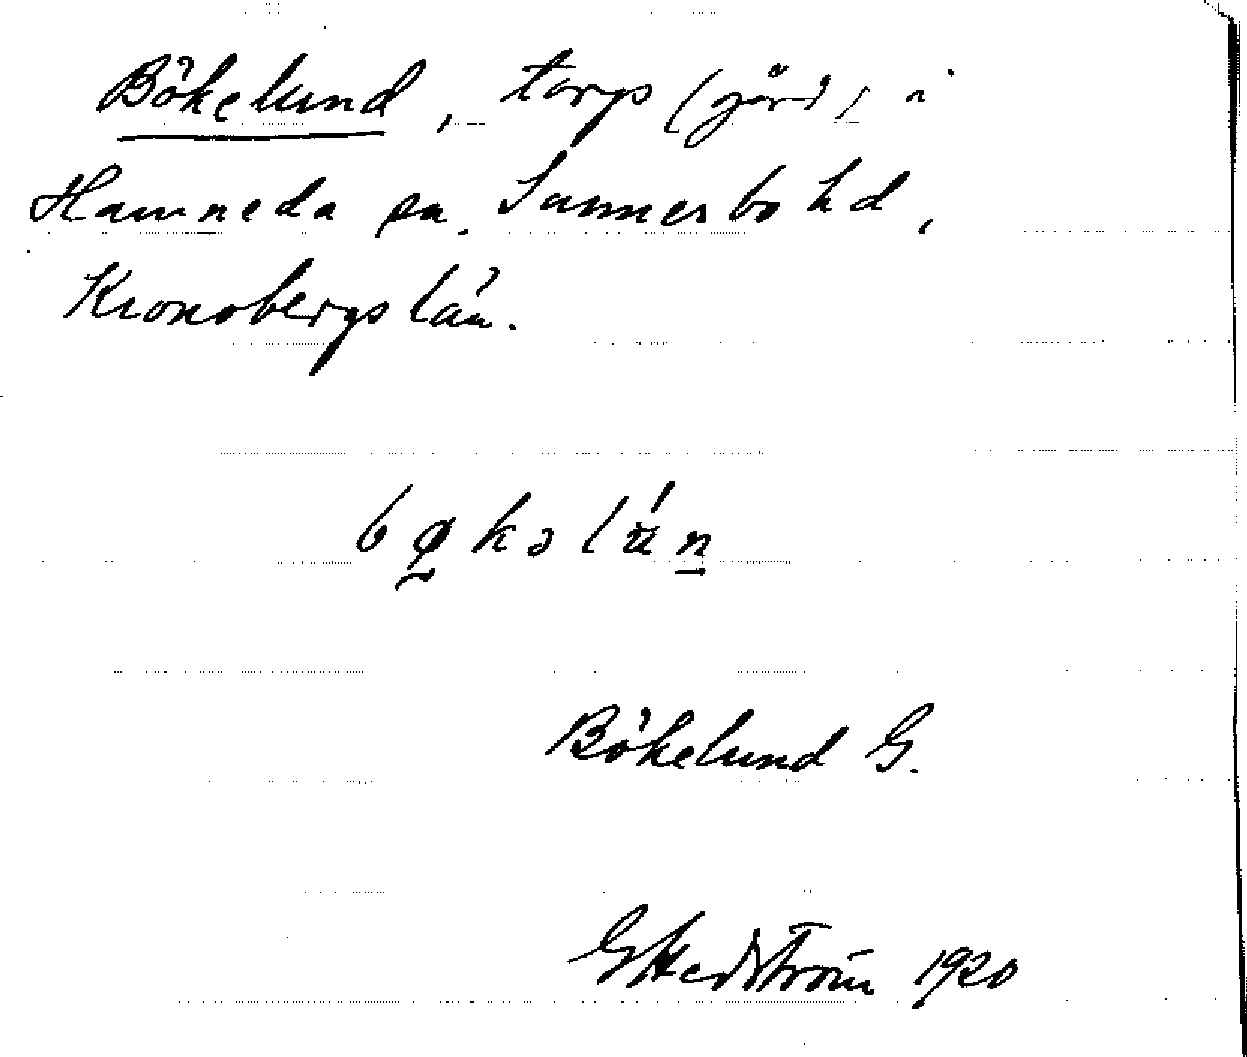 Bökelund, torp (gård) i
Hamneda sn, Sunnerbo hd,
Kronobergs län.
bø̱kəlún̲
Bökelund G.
G Hedström 1920